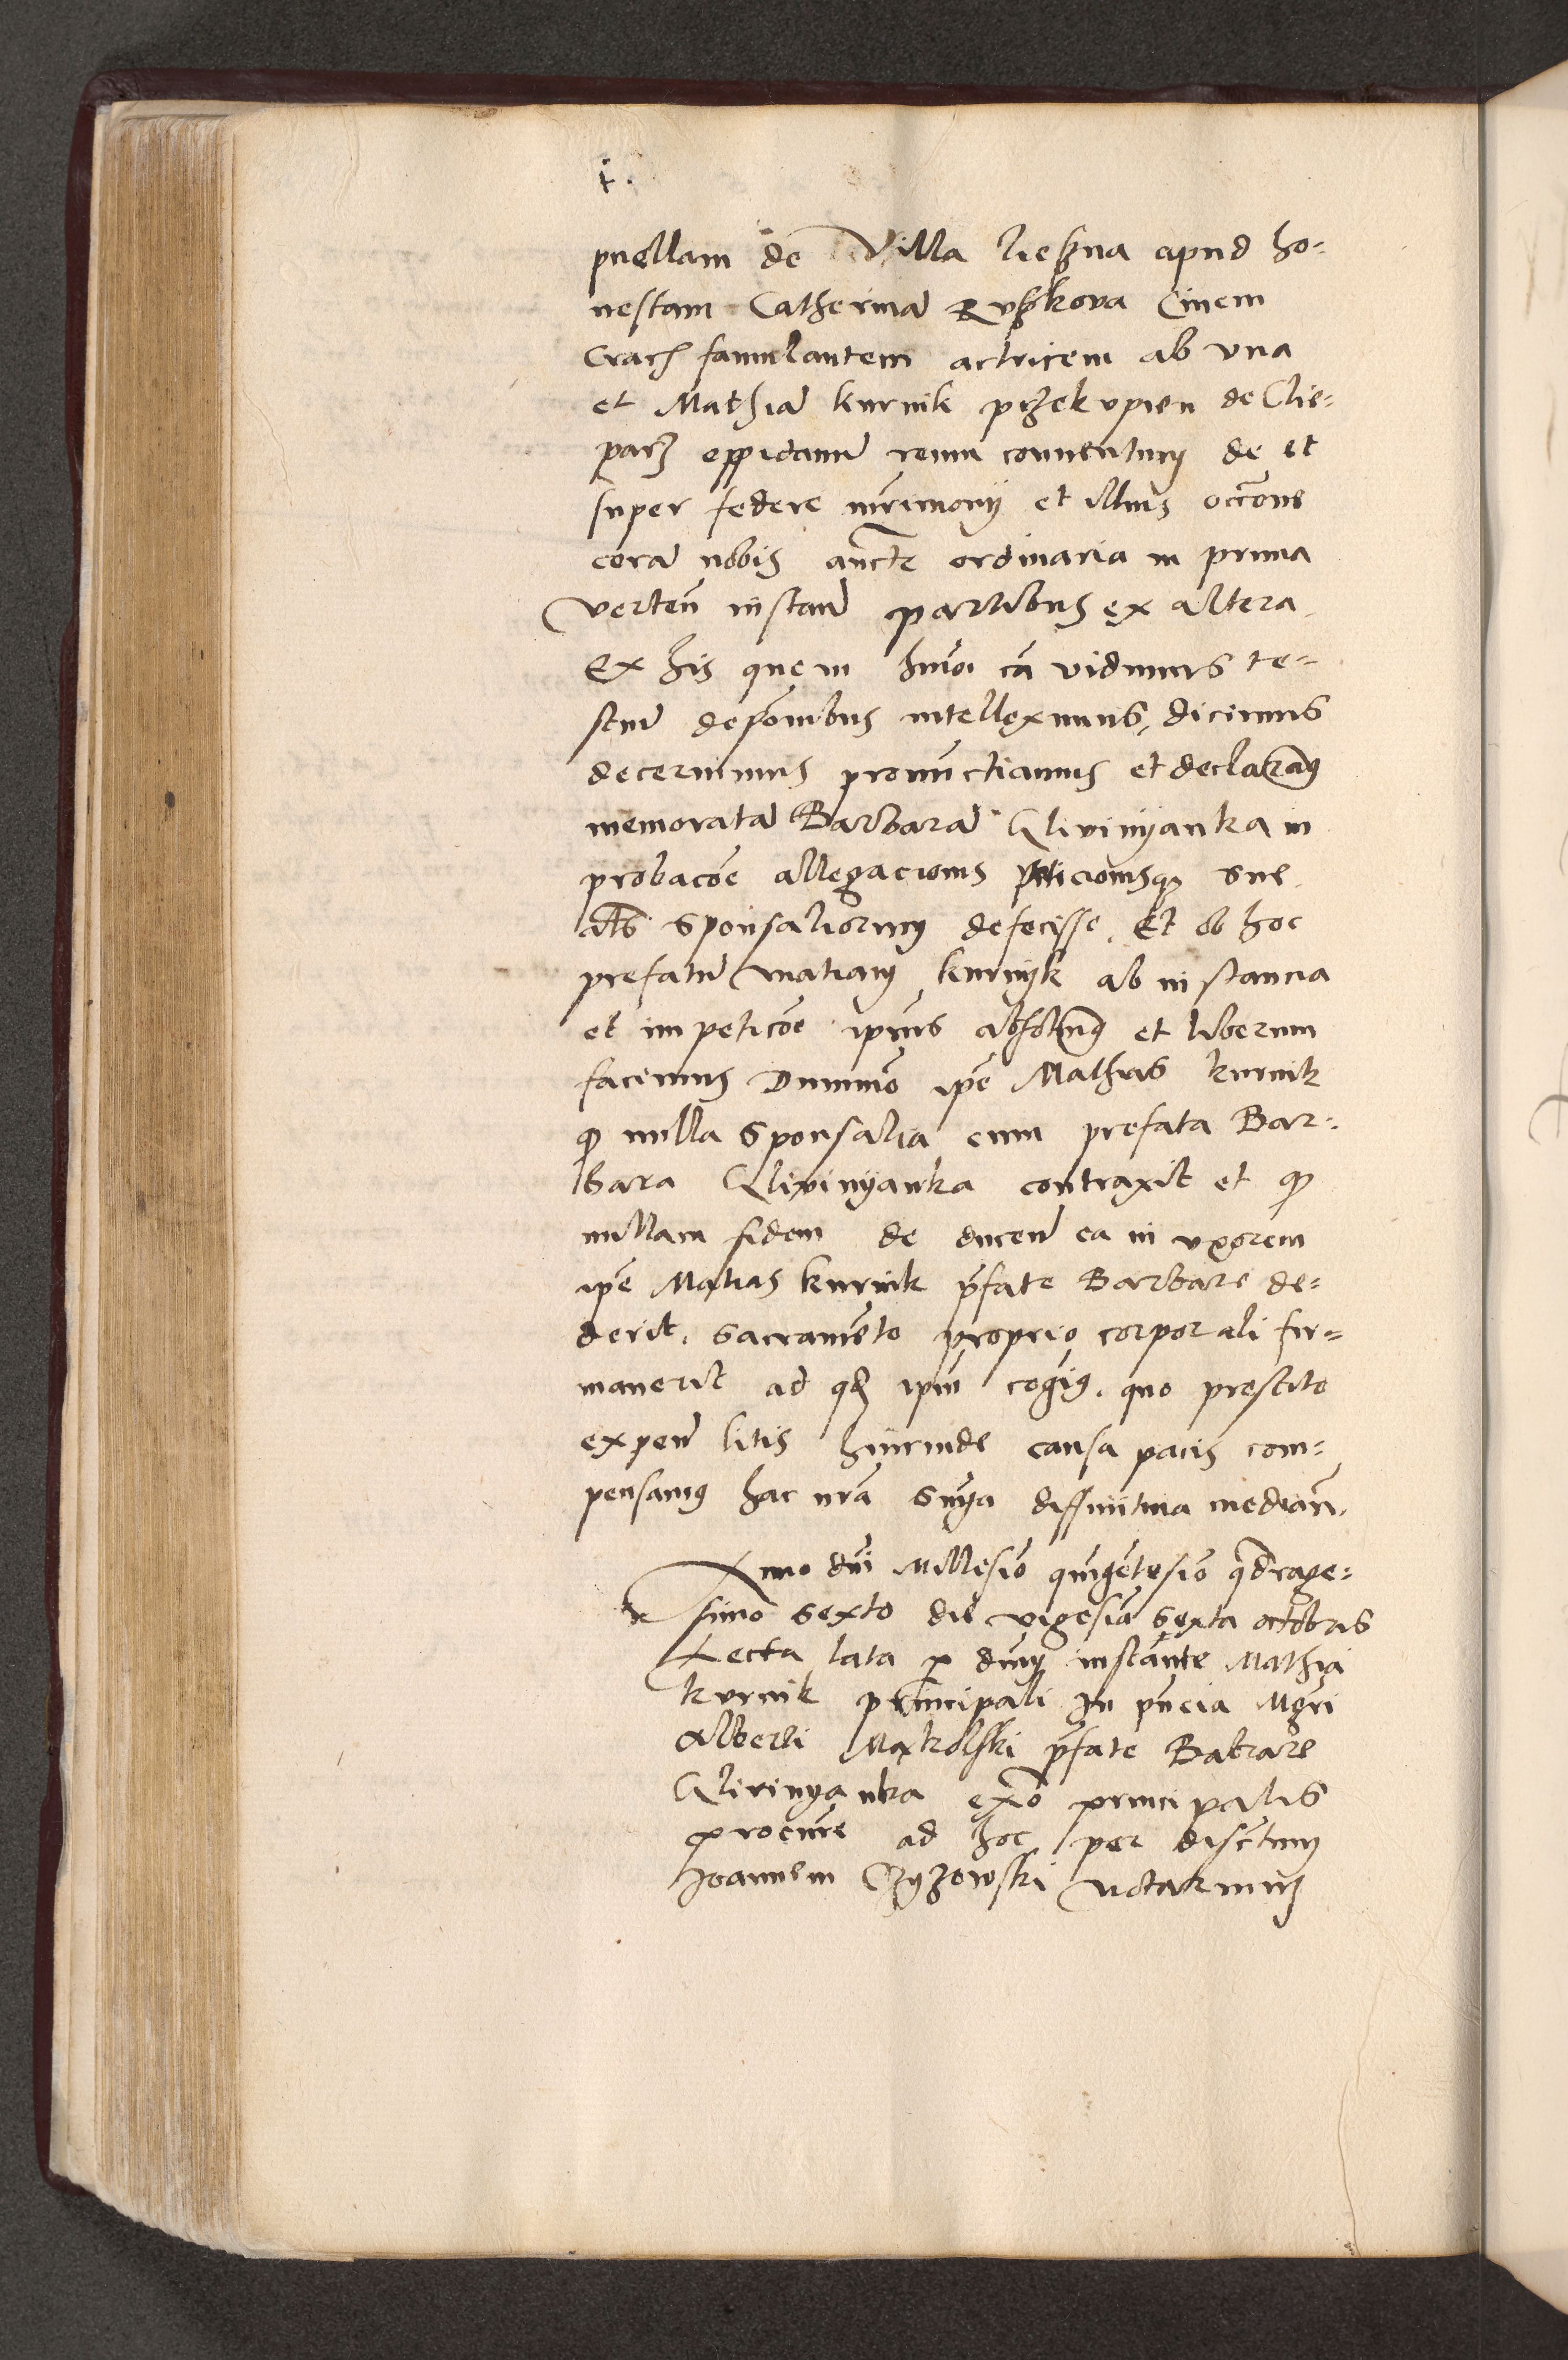 puellam de Villa liessna apud ho=
nestam Catherinā Russkova Civem
Crac̄ famulantem actricem ab una
et Mathiā kurnik przekupien de Cle=
parz oppidanū reum conventum de et
super federe mr̄imonij et illius occōne
corā nobis auc̄te ordinaria in prima
verten̄ instan̄ partibus ex altera.
Ex his que in hm̄oi cā vidimus te=
stiū depōnibus intelleximus, dicimus
decernimus pronūctiamus et declaram9
memoratā Barbarā Clivinyanka in
probacōe allegacionis peticionisq3 sue
als̄ sponsaliorum defecisse. Et ob hoc
prefatū matiam kurnyk ab instancia
et impeticōe ip̄ius absolvim9 et liberum
facimus Dummō ip̄e Mathias kurnik
q nulla sponsalia cum prefata Bar=
bara Clivinyanka contraxit et q
nullam fidem de ducen̄ ea in uxorem
ip̄e Matias kurnik p̄fate Barbare de=
derit. sacramēto proprio corporali fir=
maverit ad qd ip̄m cogim9. quo prestito
expen̄ litis hincinde causa pacis com=
pensam9 hac nr̄a sn̄ia diffinitiva median̄.
Anno dn̄i Millesiō quīgētesiō qdrage=
simo sexto die vigesiā sexta octobris
Lecta lata p dnm̄ instante Mathia
kurnik principali In pn̄cia Mgr̄i
Alberti Makolski p̄fate Babrare
Clivinyanka exō principalis
procure ad hoc per discretum
Joannem Czyzowski notarium